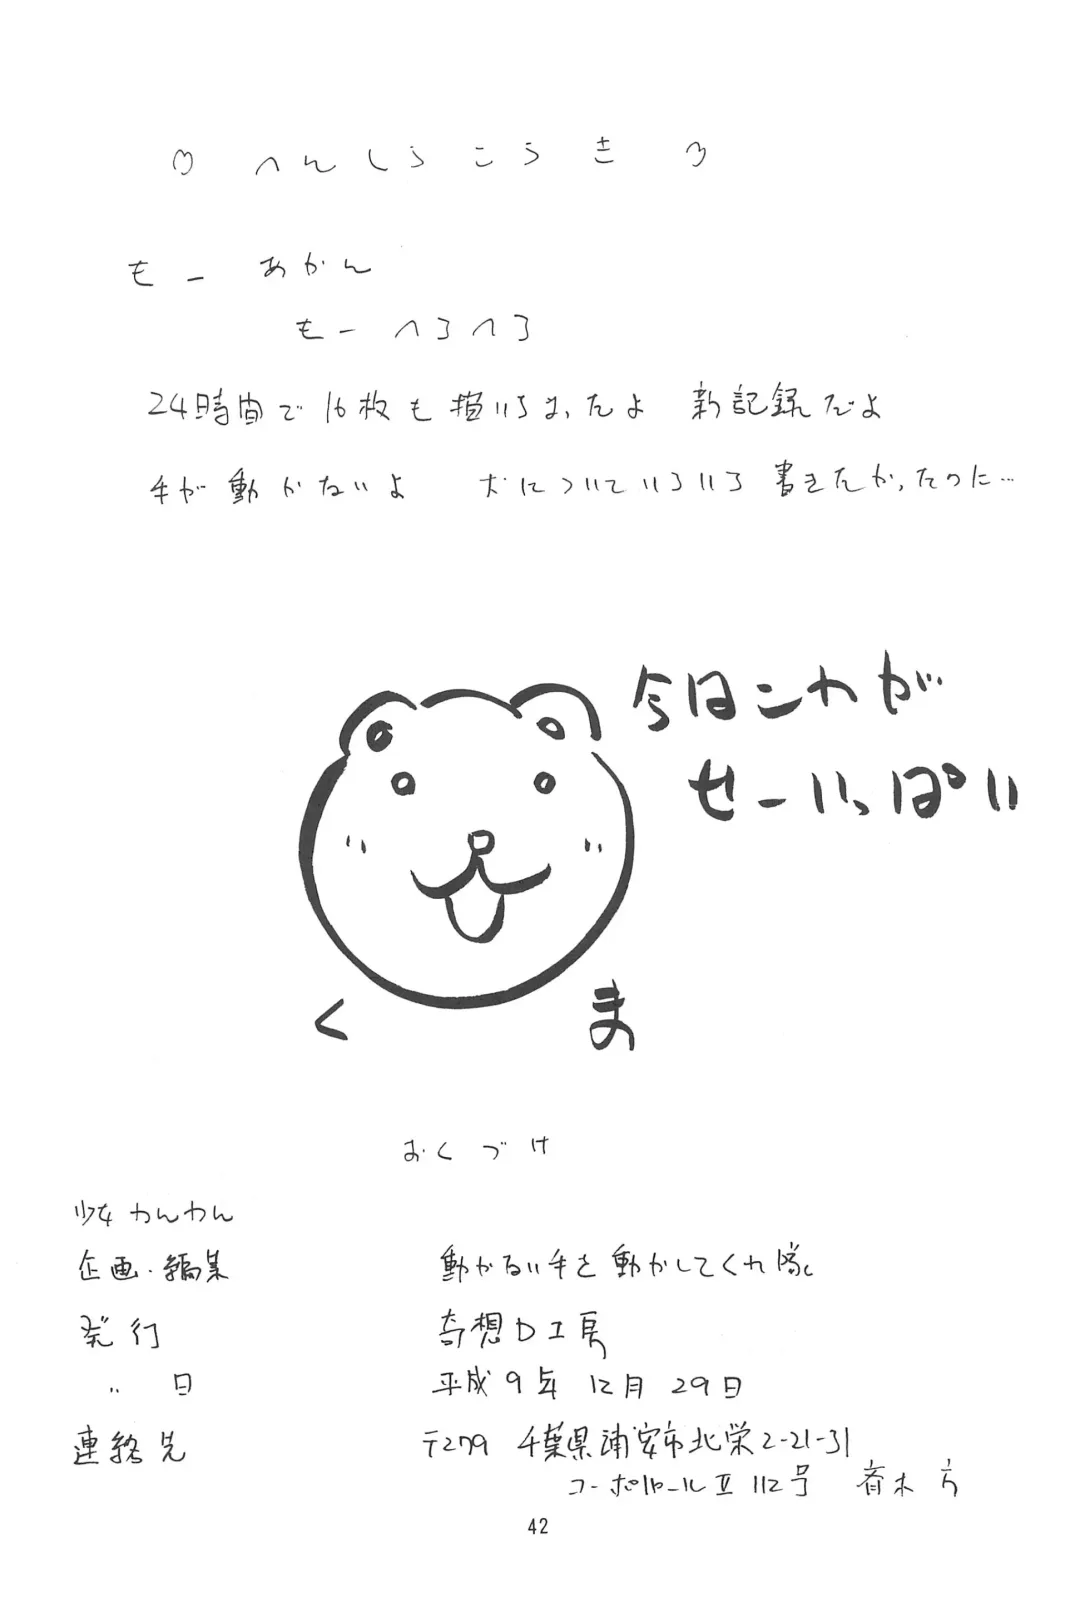 ♡ へんしうこうき ♡
もー あかん
もー へろへろ
24時間で16枚も描いちまったよ 新記録だよ
手が動かないよ 犬についていろいろ書きたかったのに…
今日これが
せーいっぱい
く ま
おくづけ
少女わんわん
企画・編集 動かない手を動かしてくれ隊
発行 奇想D工房
〃 日 平成9年12月29日
連絡先 〒279 千葉県浦安市北栄2-21-31
コーポII 112号 方
42